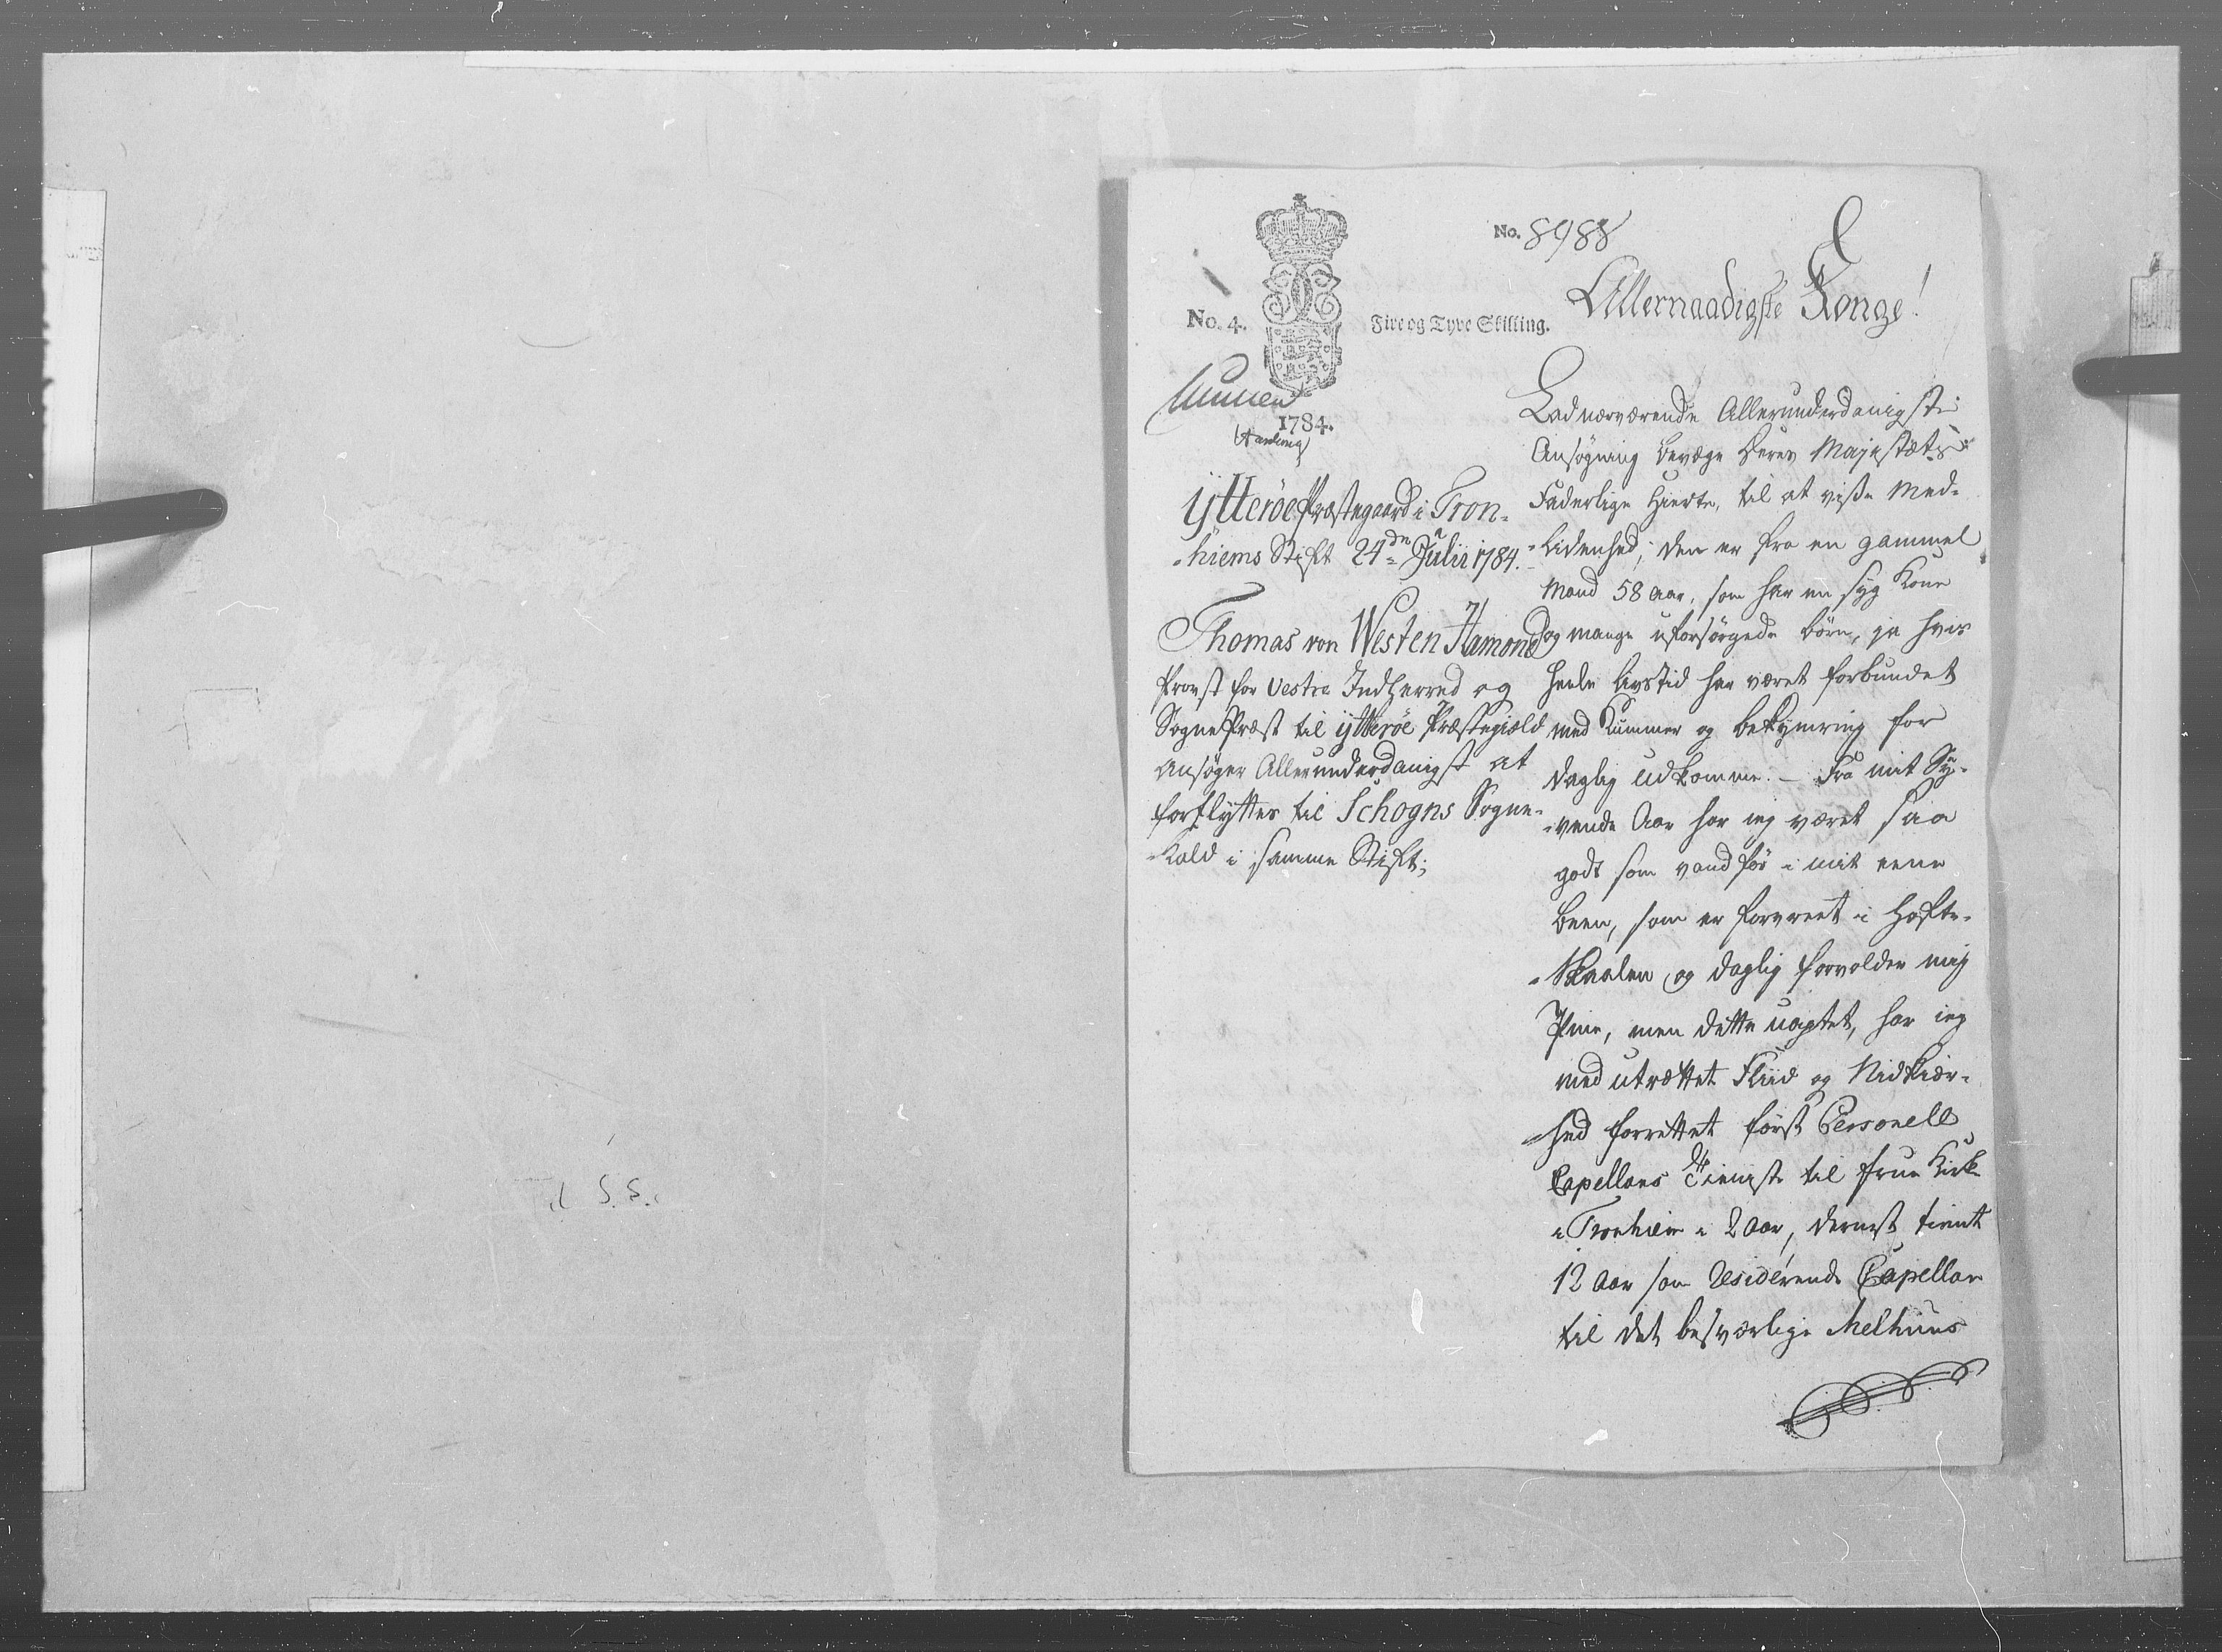 No. 8988
No. 4.
Fire og Tyve Skilling.
1784.
Ytteröe Præstegaard i Tron-
-hiems Stift 24de Julii 1784.
Thomas von Westen Hamond
Provst for Vestre Indherred og
SognePræst til ytteröe Præstegield
ansøger Allerunderdanigst at
forflyttes til Schogns Sogne-
-Kald i samme Stift;
Allernaadigste Konge!
Lad nærværende Allerunderdanigste
Ansøgning bevæge Deres Majestæts
Faderlige Hierte, til at visse Med-
-lidenhed; den er fra en gammel
Mand 58 Aar, som har en syg Kone
og mange uforsørgede børn, ja hvis
heele livstid har været forbundet
med Kummer og bekymring for
daglig udkomme. - Fra mit Sy-
-vende Aar har ieg været saa
godt som vandfør i mit eene
Been, som er forvreet i Hofte-
-Skaalen og daglig forvolder mig
Piine, men dette uagtet, har ieg
med utrættet Fliid og Nidkier-
-hed forrettet først Personell
Capellans Tieniste til Frue Kirke
i Tronhiem i 2 Aar, dernest tient
12 Aar som Residerende Capellan
til det besværlige Melhuus